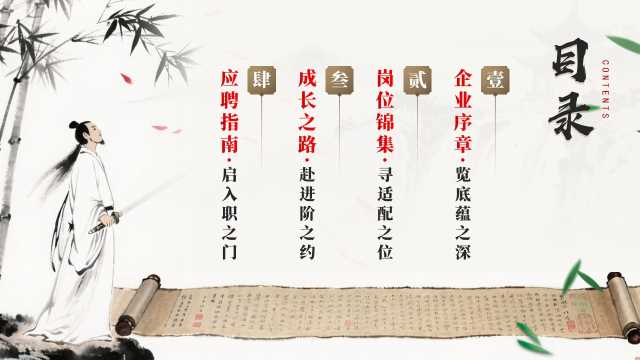 目录
CONTENTS
壹
企业序章·览底蕴之深
贰
岗位锦集·寻适配之位
叁
成长之路·赴进阶之约
肆
应聘指南·启入职之门